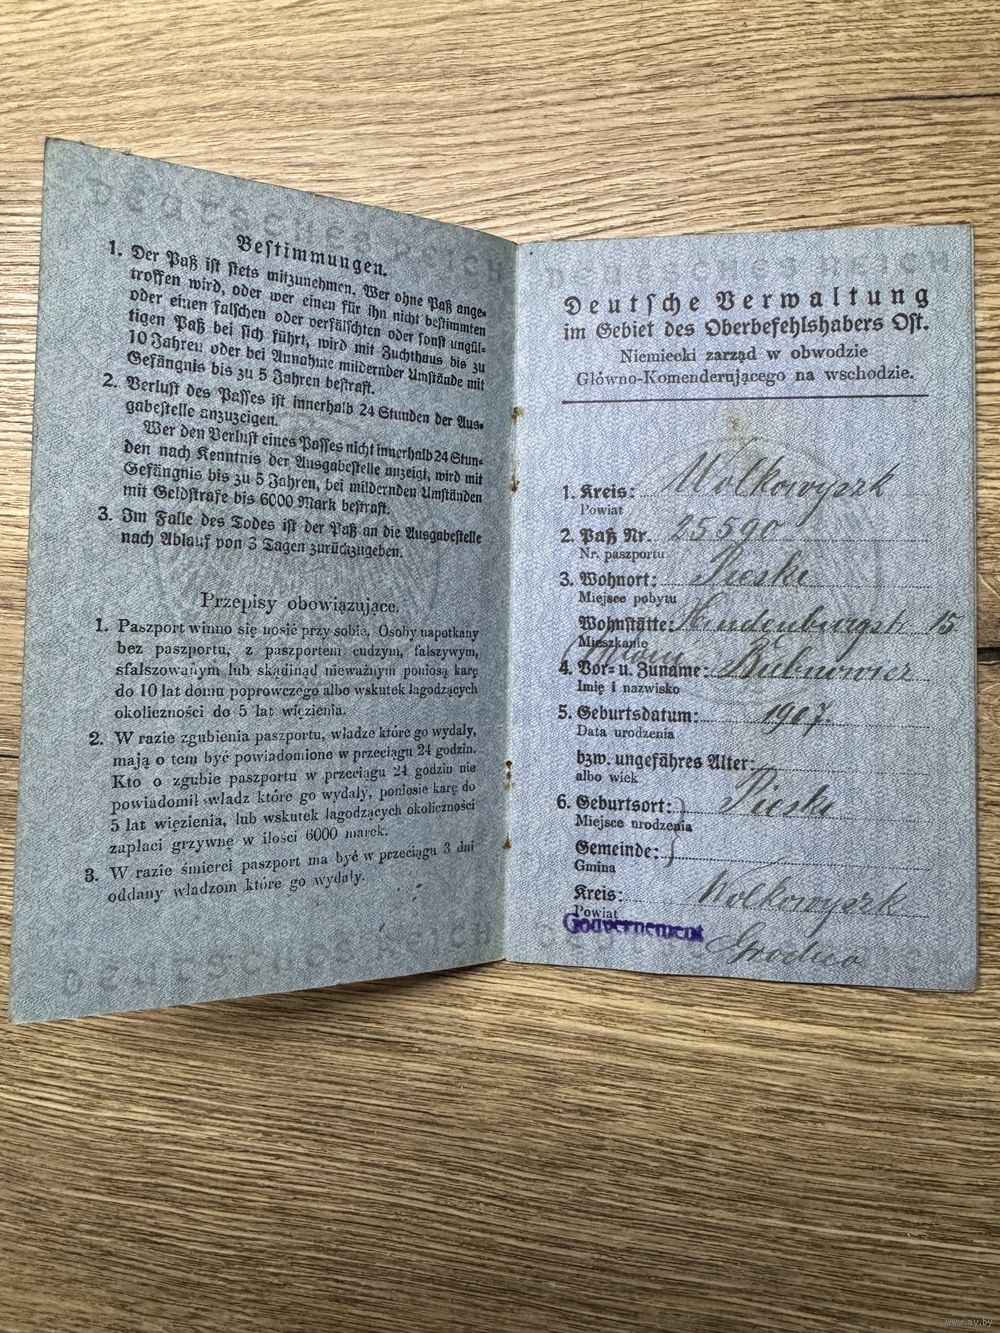 DEUTSCHES REICH
Bestimmungen.
1. Der Paß ist stets mitzunehmen. Wer ohne Paß ange-
troffen wird, oder wer einen für ihn nicht bestimmten
oder einen falschen oder verfälschten oder sonst ungül-
tigen Paß bei sich führt, wird mit Zuchthaus bis zu
10 Jahren oder bei Annahme mildernder Umstände mit
Gefängnis bis zu 5 Jahren bestraft.
2. Verlust des Passes ist innerhalb 24 Stunden der Aus-
gabestelle anzuzeigen.
Wer den Verlust eines Passes nicht innerhalb 24 Stun-
den nach Kenntnis der Ausgabestelle anzeigt, wird mit
Gefängnis bis zu 5 Jahren, bei mildernden Umständen
mit Geldstrafe bis 6000 Mark bestraft.
3. Im Falle des Todes ist der Paß an die Ausgabestelle
nach Ablauf von 3 Tagen zurückzugeben.
Przepisy obowiązujące.
1. Paszport winno się nosić przy sobie. Osoby napotkany
bez paszportu, z paszportem cudzym, fałszywym,
sfałszowanym lub skądinąd nieważnym poniosą karę
do 10 lat domu poprówczego albo wskutek łagodzących
okoliczności do 5 lat więzienia.
2. W razie zgubienia paszportu, władze które go wydały,
mają o tem być powiadomione w przeciągu 24 godzin.
Kto o zgubie paszportu w przeciągu 24 godzin nie
powiadomił władz które go wydały, poniosie karę do
5 lat więzienia, lub wskutek łagodzących okoliczności
zapłaci grzywnę w ilości 6000 marek.
3. W razie śmierci paszport ma być w przeciągu 3 dni
oddany władzom które go wydały.
DEUTSCHES REICH
DEUTSCHES REICH
Deutsche Verwaltung
im Gebiet des Oberbefehlshabers Ost.
Niemiecki zarząd w obwodzie
Główno-Komenderującego na wschodzie.
1. Kreis: Wolkowyszk
Powiat
2. Paß Nr. 25590
Nr. paszportu
3. Wohnort: Pieski
Miejsce pobytu
Wohnstätte: Hindenburgstr. 15
Mieszkanie
4. Vor- u. Zuname: Bubnowicz
Imię i nazwisko
5. Geburtsdatum: 1907.
Data urodzenia
bzw. ungefähres Alter:
albo wiek
6. Geburtsort: Pieski
Miejsce urodzenia
Gemeinde:
Gmina
Kreis: Wolkowyszk
Powiat
Gouvernement Grodno
www.ay.by